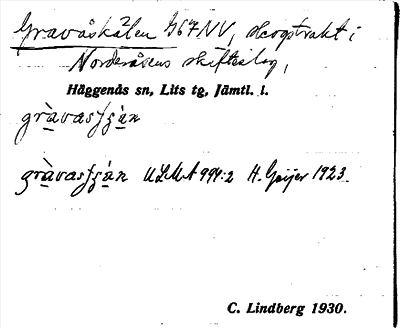 Gravåskälen G67NV, skogstrakt i
Norderåsens skifteslag,
Häggenås sn, Lits tg, Jämtl. l.
gràvasʃʒán
gràvasʃʒán ULMA 994:2 H. Geijer 1923.
C. Lindberg 1930.